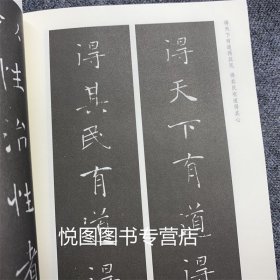 得天下有道得其民 得其民有道得其心
得天下有道得
得其民有道得
性治性者
悦图图书专营店